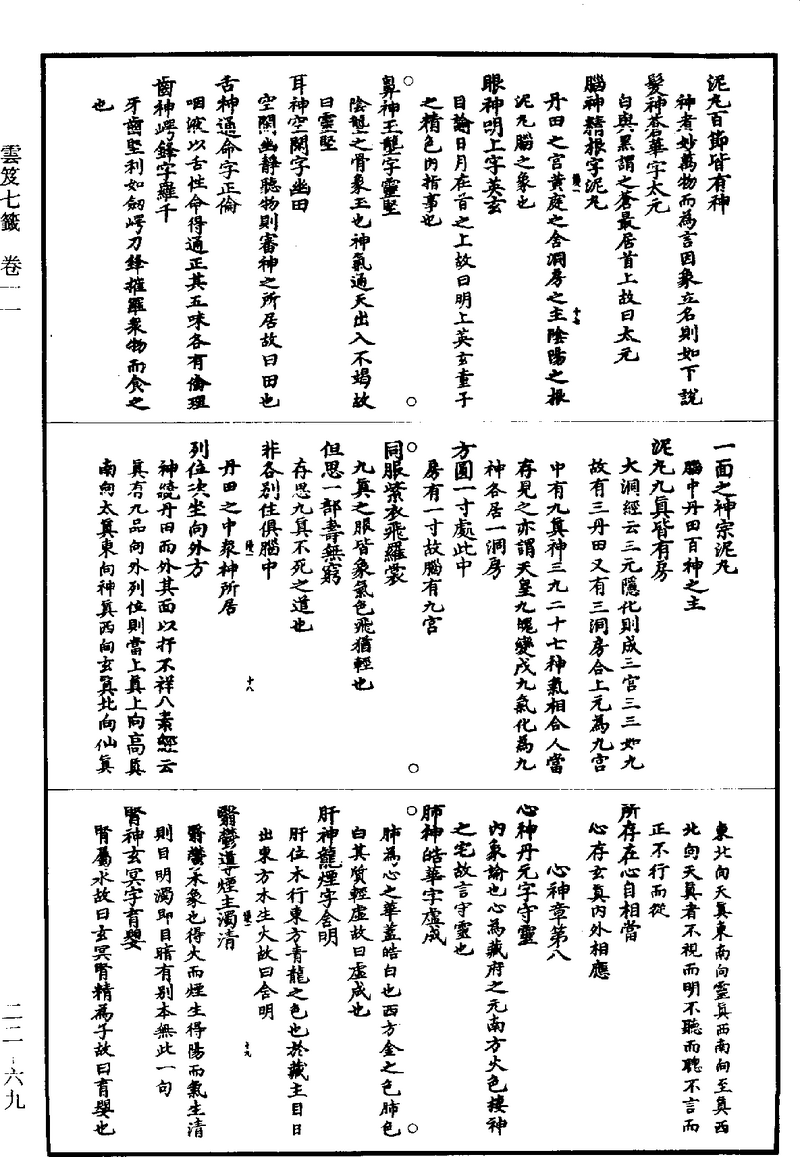 雲笈七籤 卷一一
二二-六九
泥丸百節皆有神
神者妙萬物而為言因象立名則如下說
髮神蒼華字太元
白與黑謂之蒼最居首上故曰太元
腦神精根字泥丸
丹田之宮黃庭之舍洞房之主陰陽之根
泥丸腦之象也
眼神明上字英玄
目諭日月在首之上故曰明上英玄童子
之精色內指事也
鼻神玉壟字靈堅
陰壟之骨象玉也神氣通天出入不竭故
曰靈堅
耳神空閑字幽田
空閑幽靜聽物則審神之所居故曰田也
舌神通命字正倫
咽液以舌性命得通正其五味各有倫理
齒神崿鋒字羅千
牙齒堅利如劍崿刀鋒摧羅衆物而食之
也
十七
一面之神宗泥丸
腦中丹田百神之主
泥丸九真皆有房
大洞經云三元隱化則成三宮三三如九
故有三丹田又有三洞房合上元為九宮
中有九真神三九二十七神氣相合人當
存見之亦謂天皇九魄變成九氣化為九
神各居一洞房
方圓一寸處此中
房有一寸故腦有九宮
同服紫衣飛羅裳
九真之服皆象氣色飛猶輕也
但思一部壽無窮
存思九真不死之道也
非各別住俱腦中
丹田之中衆神所居
列位次坐向外方
神統丹田而外其面以扞不祥八素經云
真有九品向外列位則當上真上向高真
南向太真東向神真西向玄真北向仙真
十八
東北向天真東南向靈真西南向至真西
北向天真者不視而明不聽而聰不言而
正不行而從
所存在心自相當
心存玄真內外相應
心神章第八
心神丹元字守靈
內象諭也心為藏府之元南方火色棲神
之宅故言守靈也
肺神皓華字虛成
肺為心之華蓋皓白也西方金之色肺色
白其質輕虛故曰虛成也
肝神龍煙字含明
肝位木行東方青龍之色也於藏主目日
出東方木生火故曰含明
翳鬱導煙主濁清
翳鬱木象也得火而煙生得陽而氣生清
則目明濁即目暗有別本無此一句
腎神玄冥字育嬰
腎屬水故曰玄冥腎精為子故曰育嬰也
十九